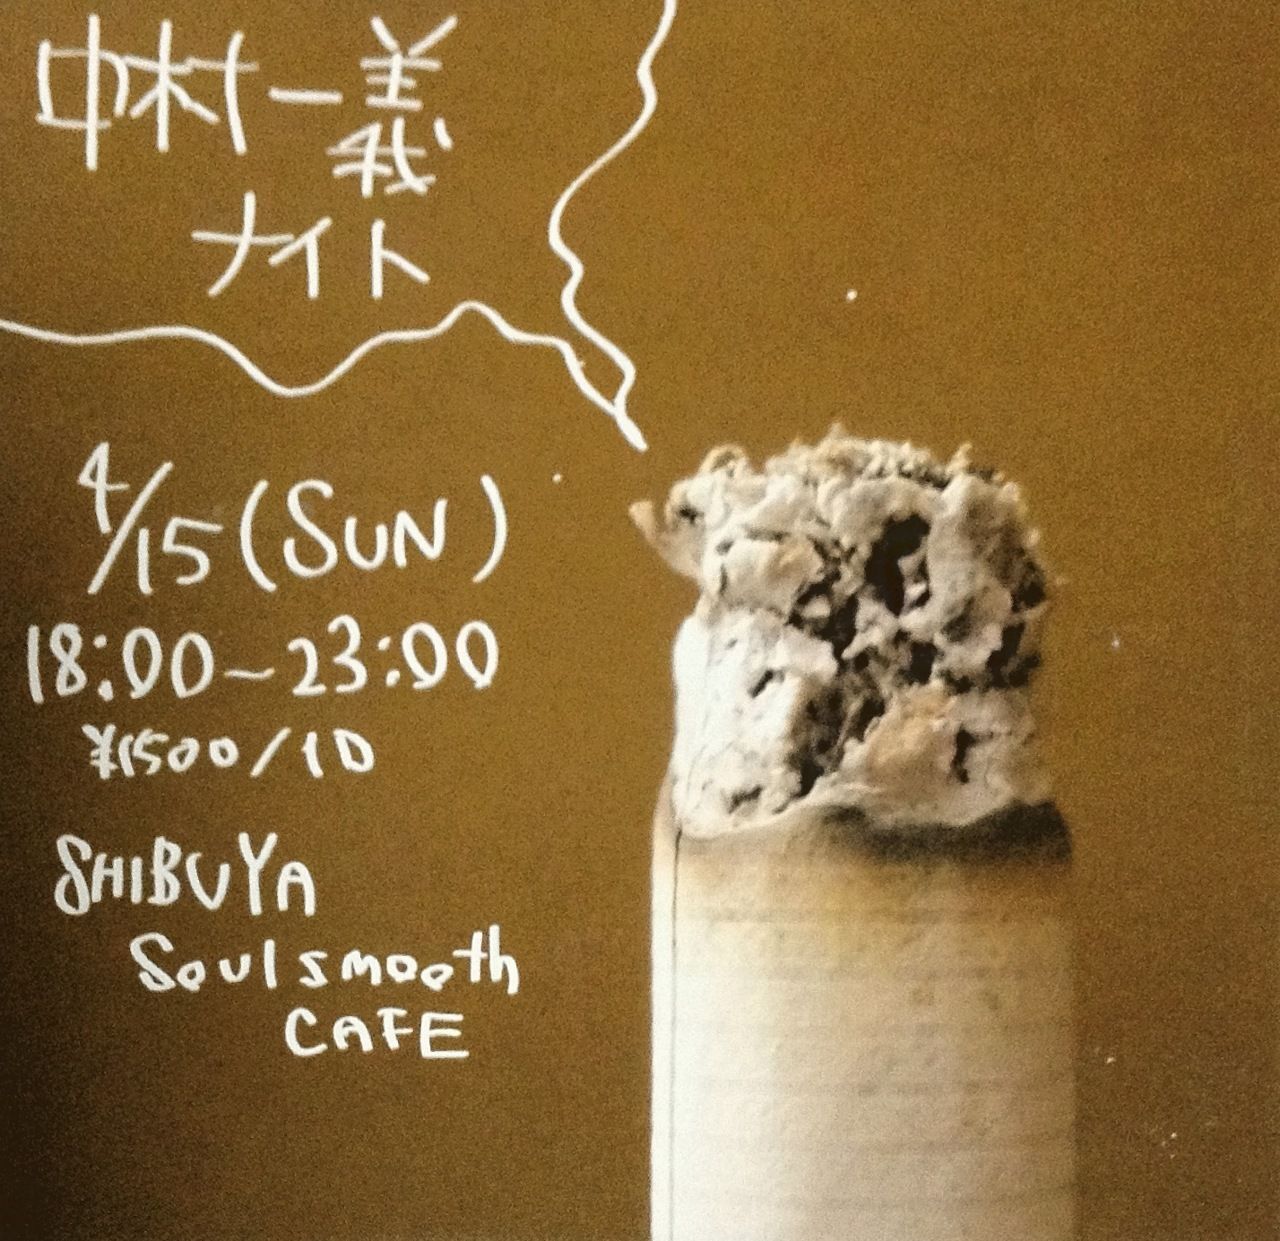 中村一義
ナイト
4/15(SUN)
18:00~23:00
¥1500/1D
SHIBUYA
Soulsmooth
CAFE